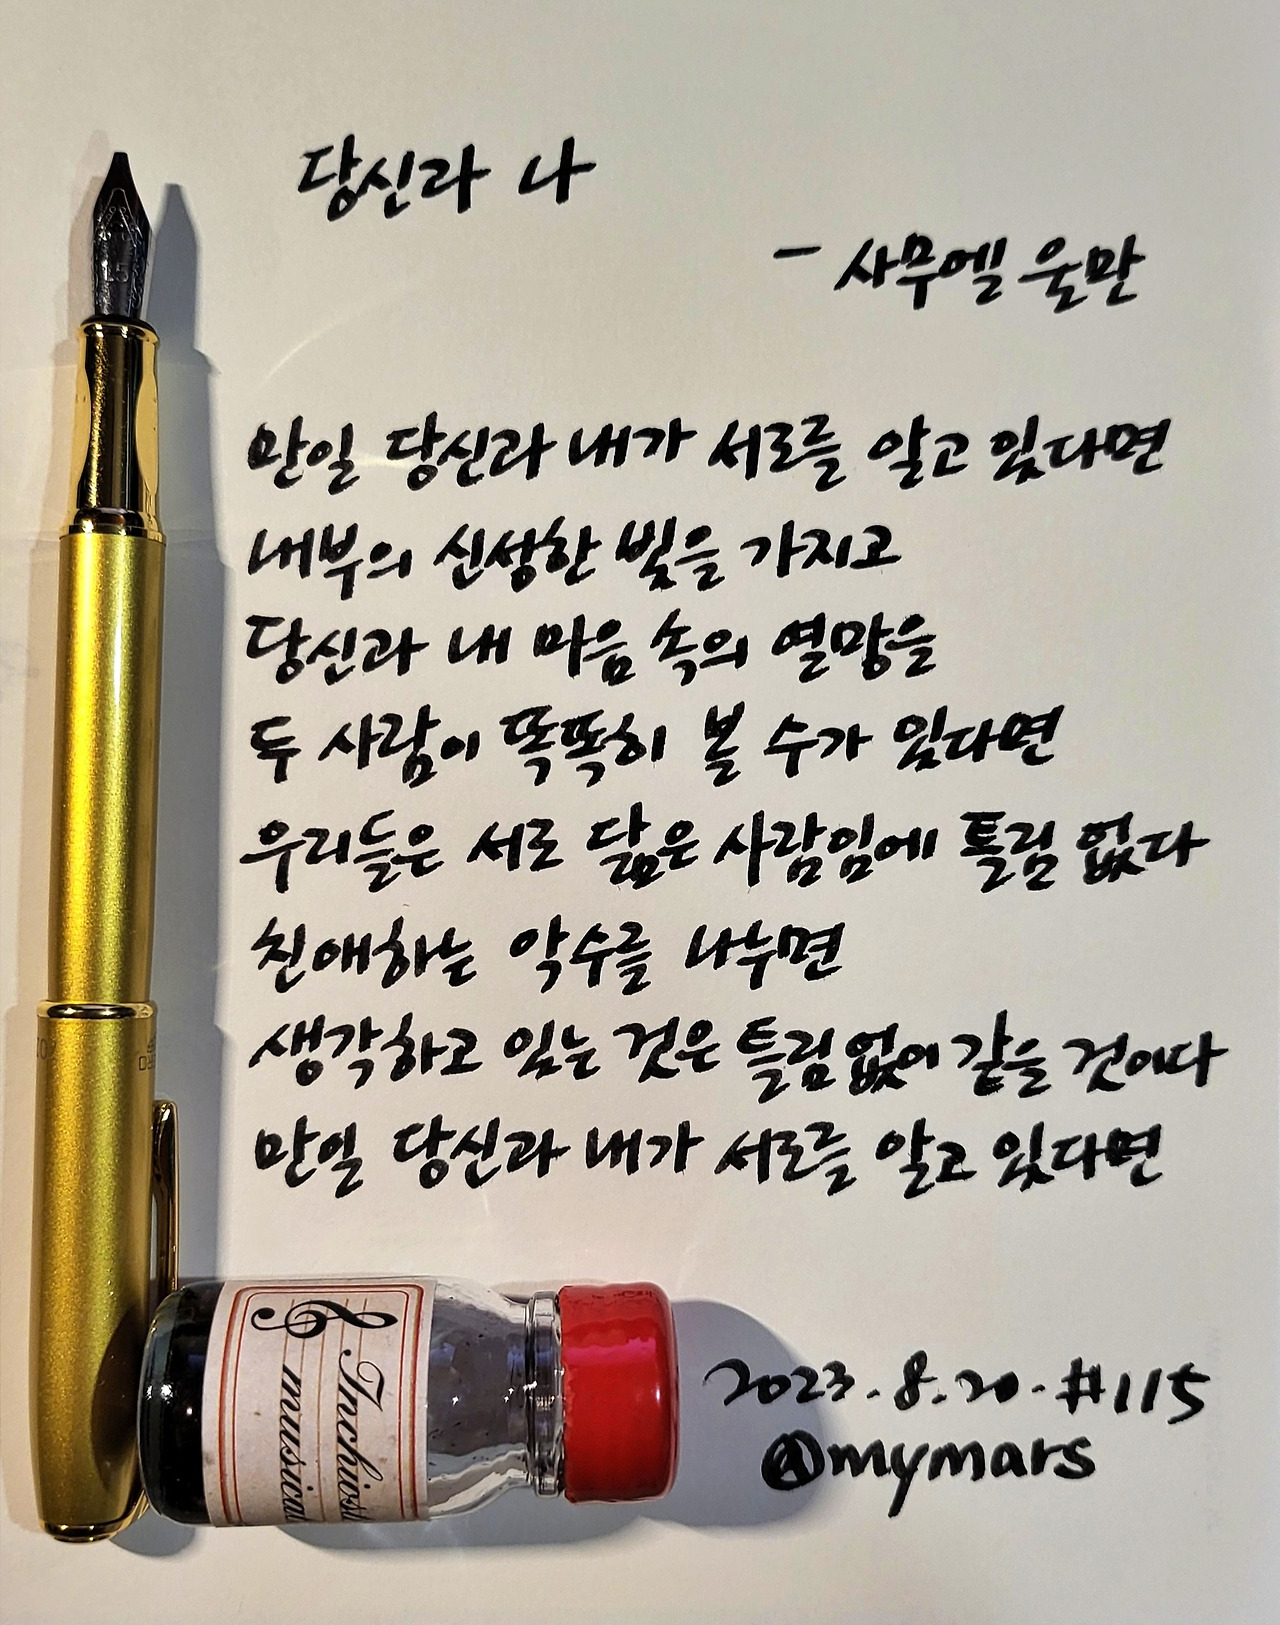 당신과 나
- 사무엘 울만
만일 당신과 내가 서로를 알고 있다면
내부의 신성한 빛을 가지고
당신과 내 마음 속의 열망을
두 사람이 똑똑히 볼 수가 있다면
우리들은 서로 닮은 사람임에 틀림 없다
친애하는 악수를 나누면
생각하고 있는 것은 틀림없이 같을 것이다
만일 당신과 내가 서로를 알고 있다면
Inchiostri
musicali
2023.8.20. #115
@mymars